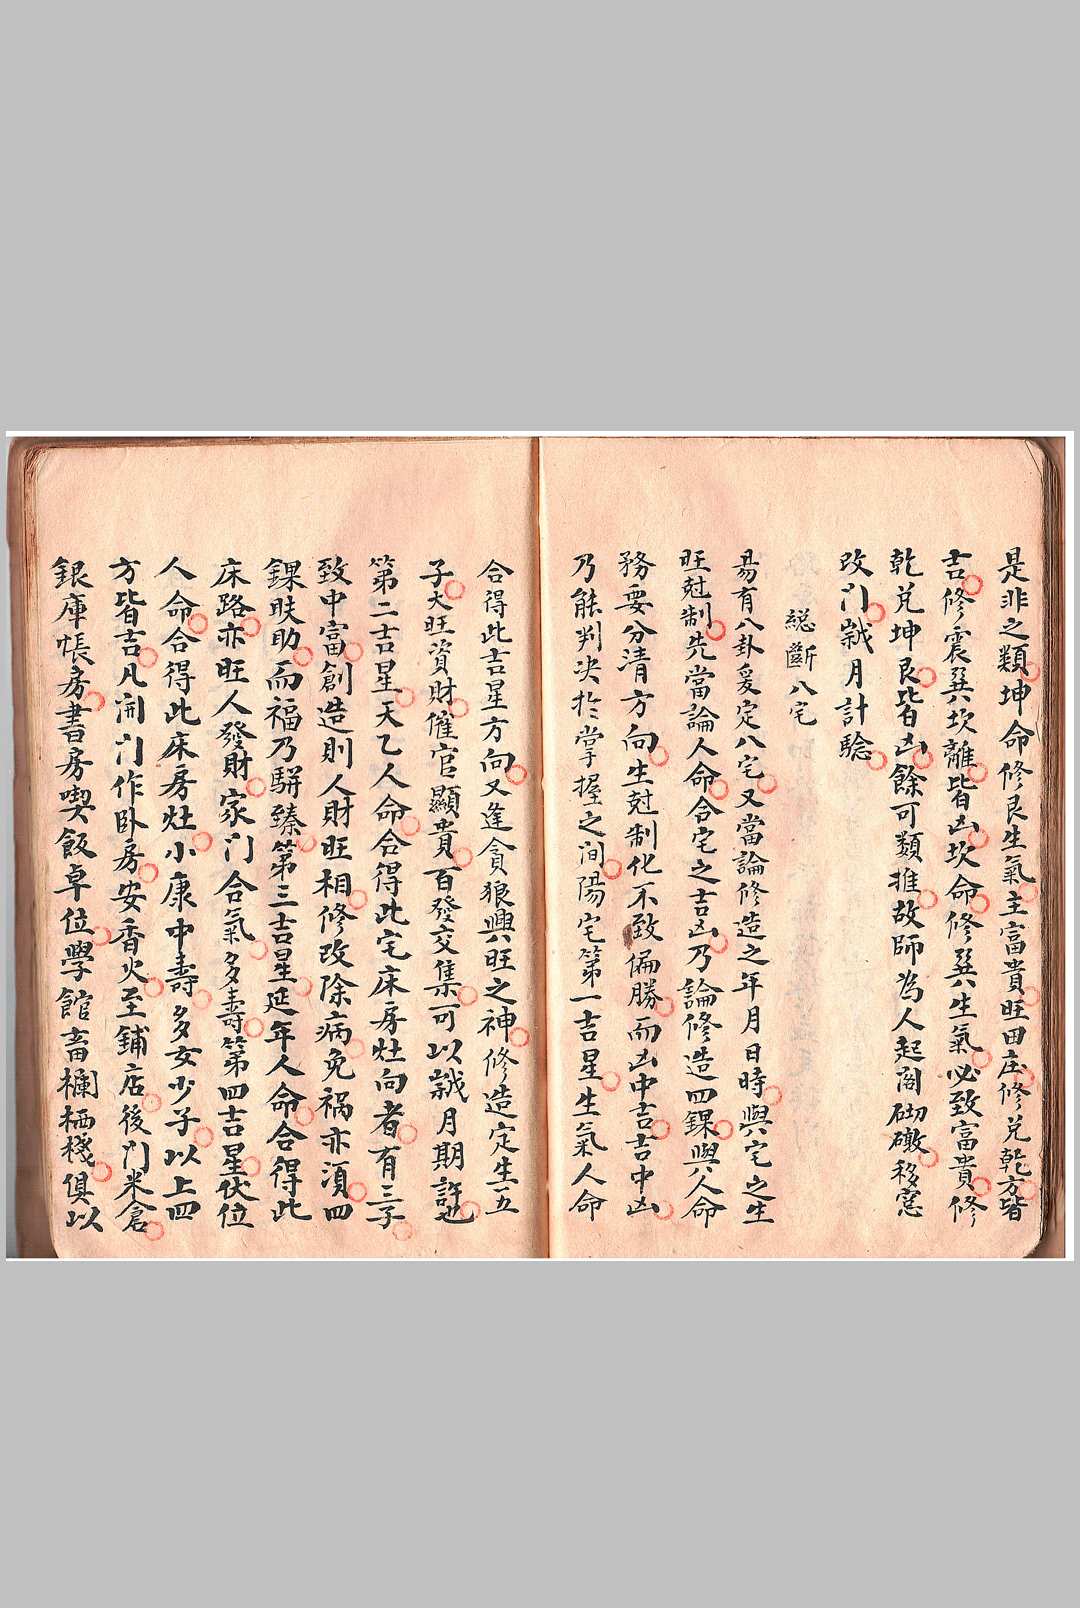 是非之類坤命修艮生氣主富貴旺田庄修兌乾方皆
吉修震巽坎離皆凶坎命修巽生氣必致富貴修
乾兌坤艮皆凶餘可類推故師為人起閣砌礅移窓
改门嵗月計騐
總斷八宅
易有八卦爰定八宅又當論修造之年月日時與宅之生
旺尅制先當論人命合宅之吉凶乃論修造四錁與人命
務要分清方向生尅制化不致偏勝而凶中吉吉中凶
乃能判决於掌握之间陽宅第一吉星生氣人命
合得此吉星方向又逢貪狼興旺之神修造定生五
子大旺資財催官顯貴百發交集可以嵗月期許也
第二吉星天乙人命合得此宅床房灶向者有三子
致中富創造則人財旺相修改除病免禍亦湏四
錁扶助而福乃駢臻第三吉星延年人命合得此
床路亦旺人發財家门合氣多壽第四吉星伏位
人命合得此床房灶小康中壽多女少子以上四
方皆吉凡開门作卧房安香火至鋪店後门米倉
銀庫帳房書房喫飯卓位學館畜欄栖棧俱以